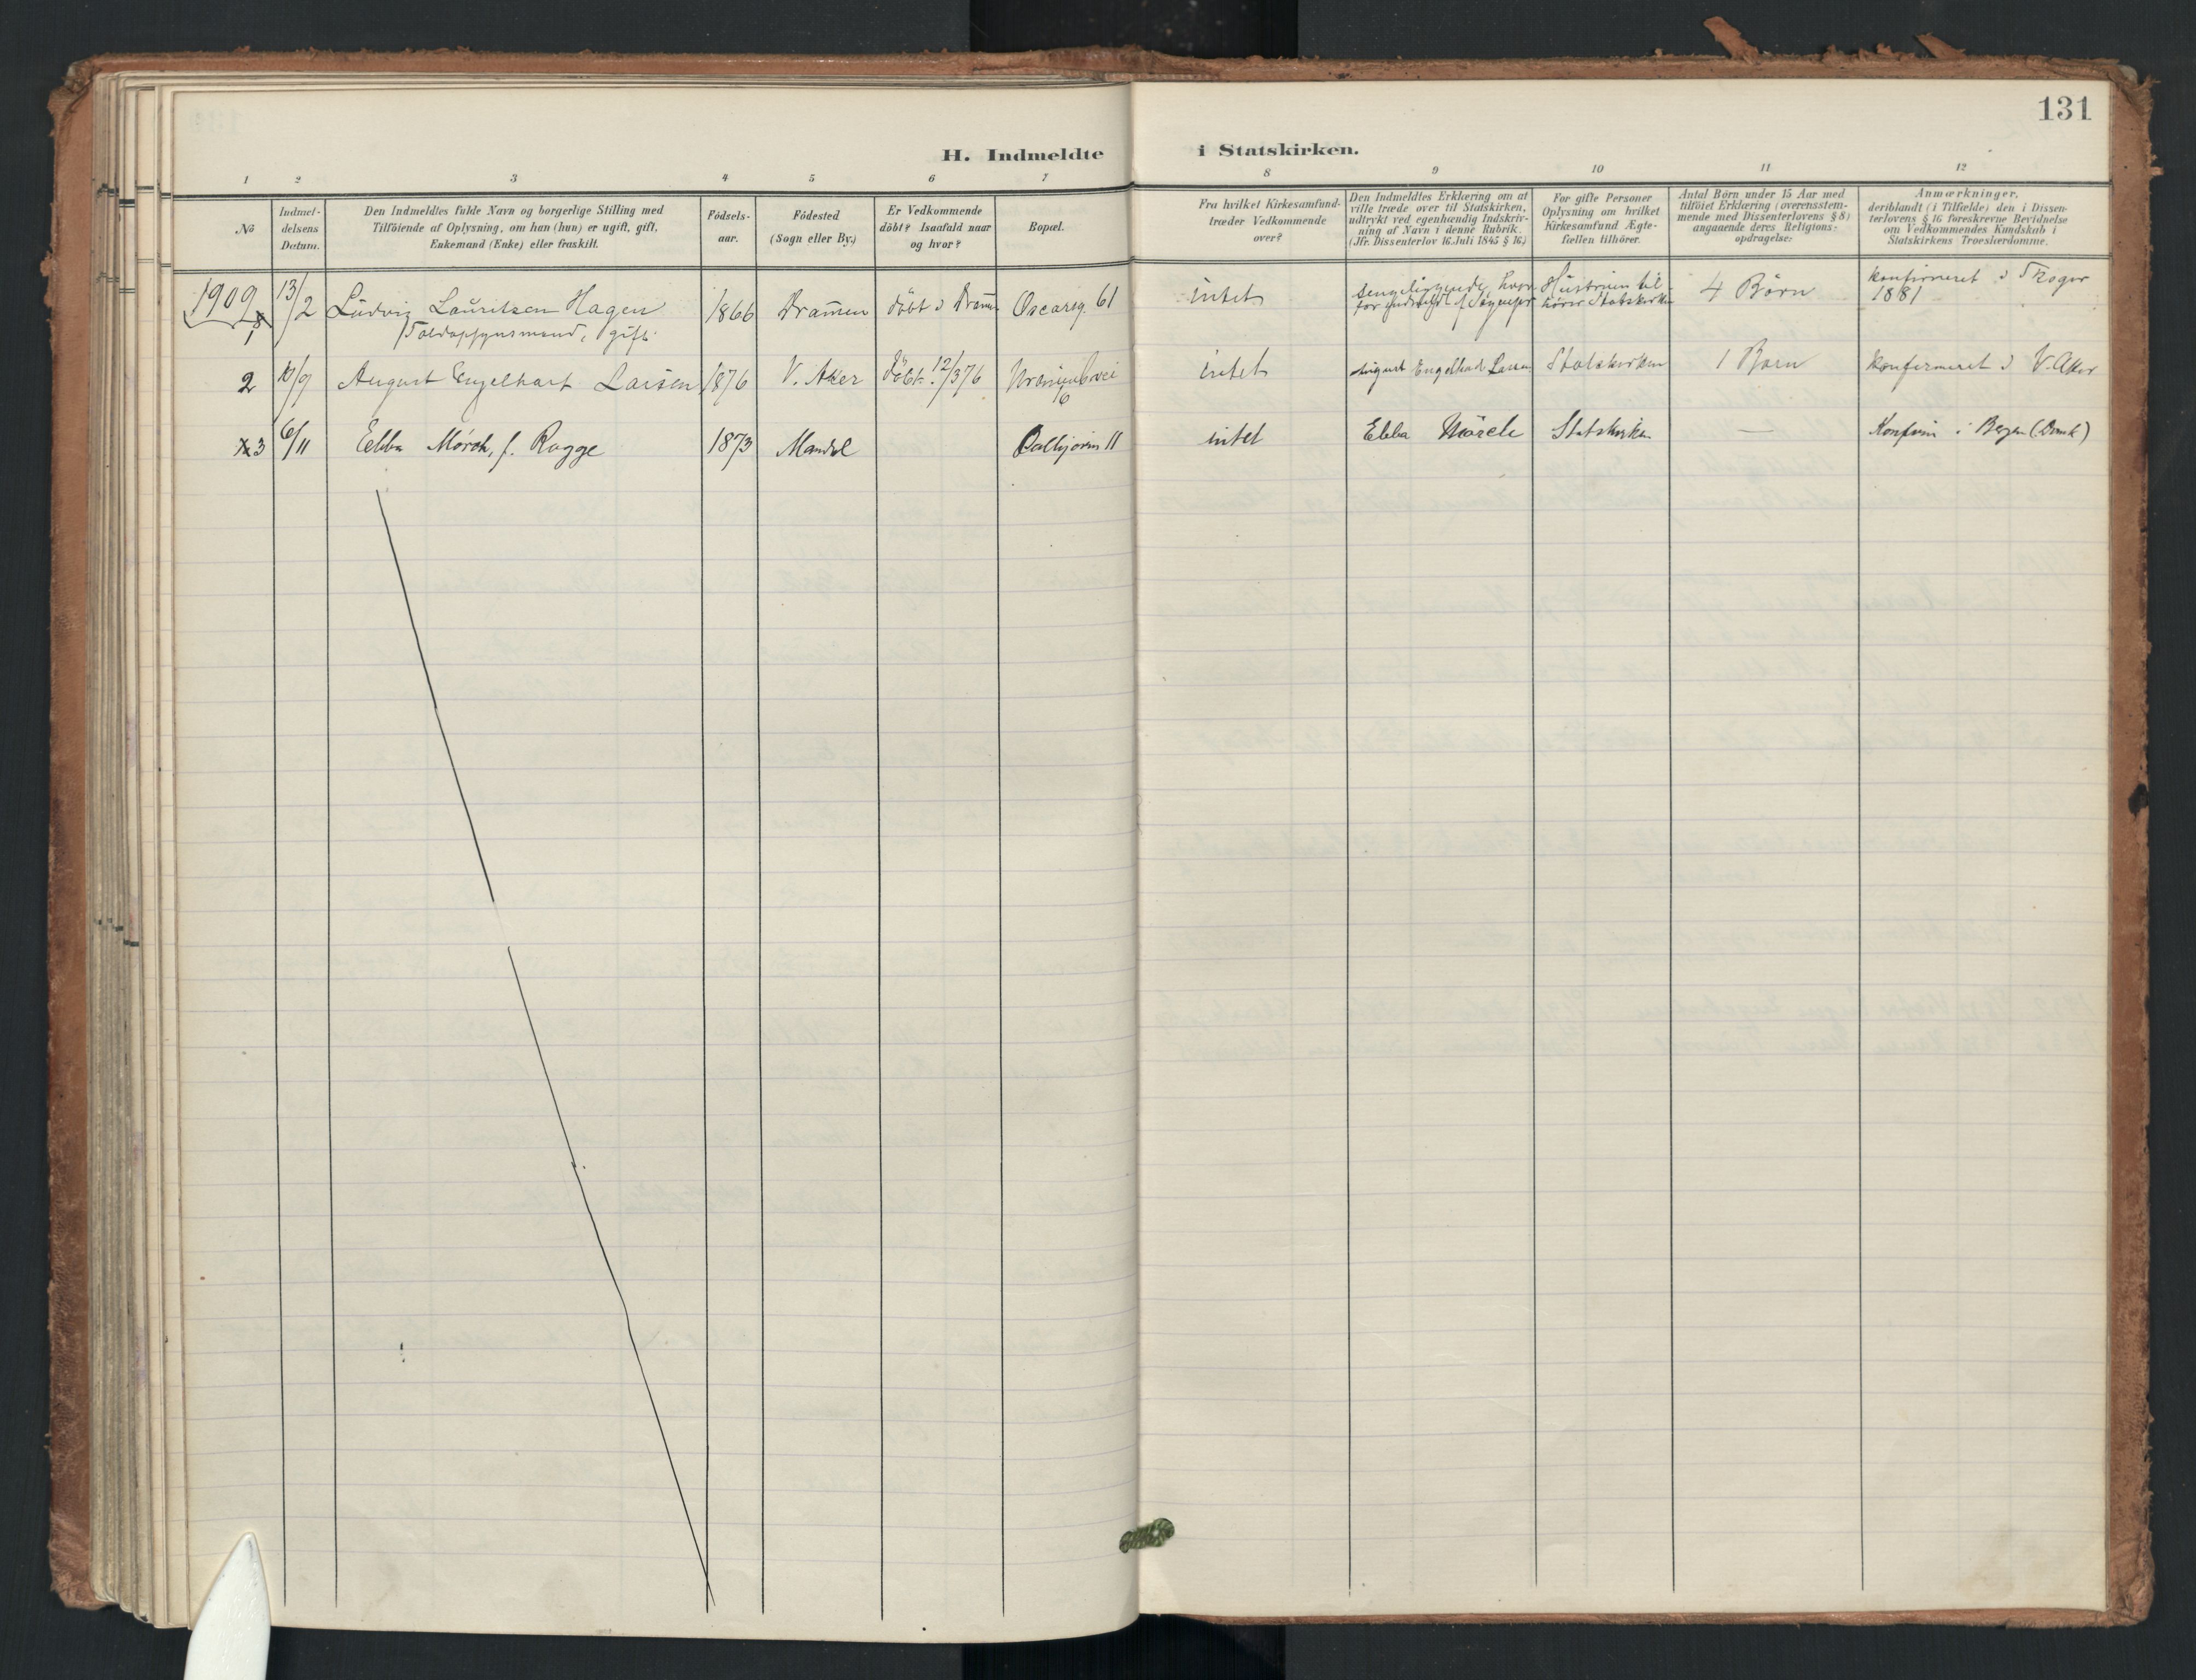 131
H. Indmeldte i Statskirken.
1 2 3 4 5 6 7 8 9 10 11 12
No
Indmel-
delsens
Datum.
Den Indmeldtes fulde Navn og borgerlige Stilling med
Tilföiende af Oplysning, om han (hun) er ugift, gift,
Enkemand (Enke) eller fraskilt.
Födsels-
aar.
Födested
(Sogn eller By.)
Er Vedkommende
döbt? Isaafald naar
og hvor?
Bopæl.
Fra hvilket Kirkesamfund-
træder Vedkommende
over?
Den Indmeldtes Erklæring om at
ville træde over til Statskirken,
udtrykt ved egenhændig Indskriv-
ning af Navn i denne Rubrik.
(Jfr. Dissenterlov 16. Juli 1845 § 16.)
For gifte Personer
Oplysning om hvilket
Kirkesamfund Ægte-
fællen tilhörer.
Antal Börn under 15 Aar med
tilföiet Erklæring (overensstem-
mende med Dissenterlovens § 8)
angaaende deres Religions-
opdragelse:
Anmærkninger,
deriblandt (i Tilfælde) den i Dissen-
terlovens § 16 foreskrevne Bevidnelse
om Vedkommendes Kundskab i
Statskirkens Troeslærdomme.
1909
1
13/2
Ludvig Lauritzen Hagen
Toldopsynsmand, gift.
1866
Drammen
döbt i Dramn
Oscarsg. 61
intet
Sengeliggende, hvor-
for
Hustruen til-
hörer Statskirken
4 Börn
konfirmeret i Skoger
1881
2
10/9
August Engelhart Larsen
1876
V. Aker
döbt 12/3 76
Uranienbvei
6
intet
August Engelhart Larsen
Statskirken
1 Barn
konfirmeret i V. Aker
3
6/11
Ebba Mörch, f. Rogge
1873
Mandal
11
intet
Ebba Mörch
Statskirken
—
Konfirm i Bergen (Domk)